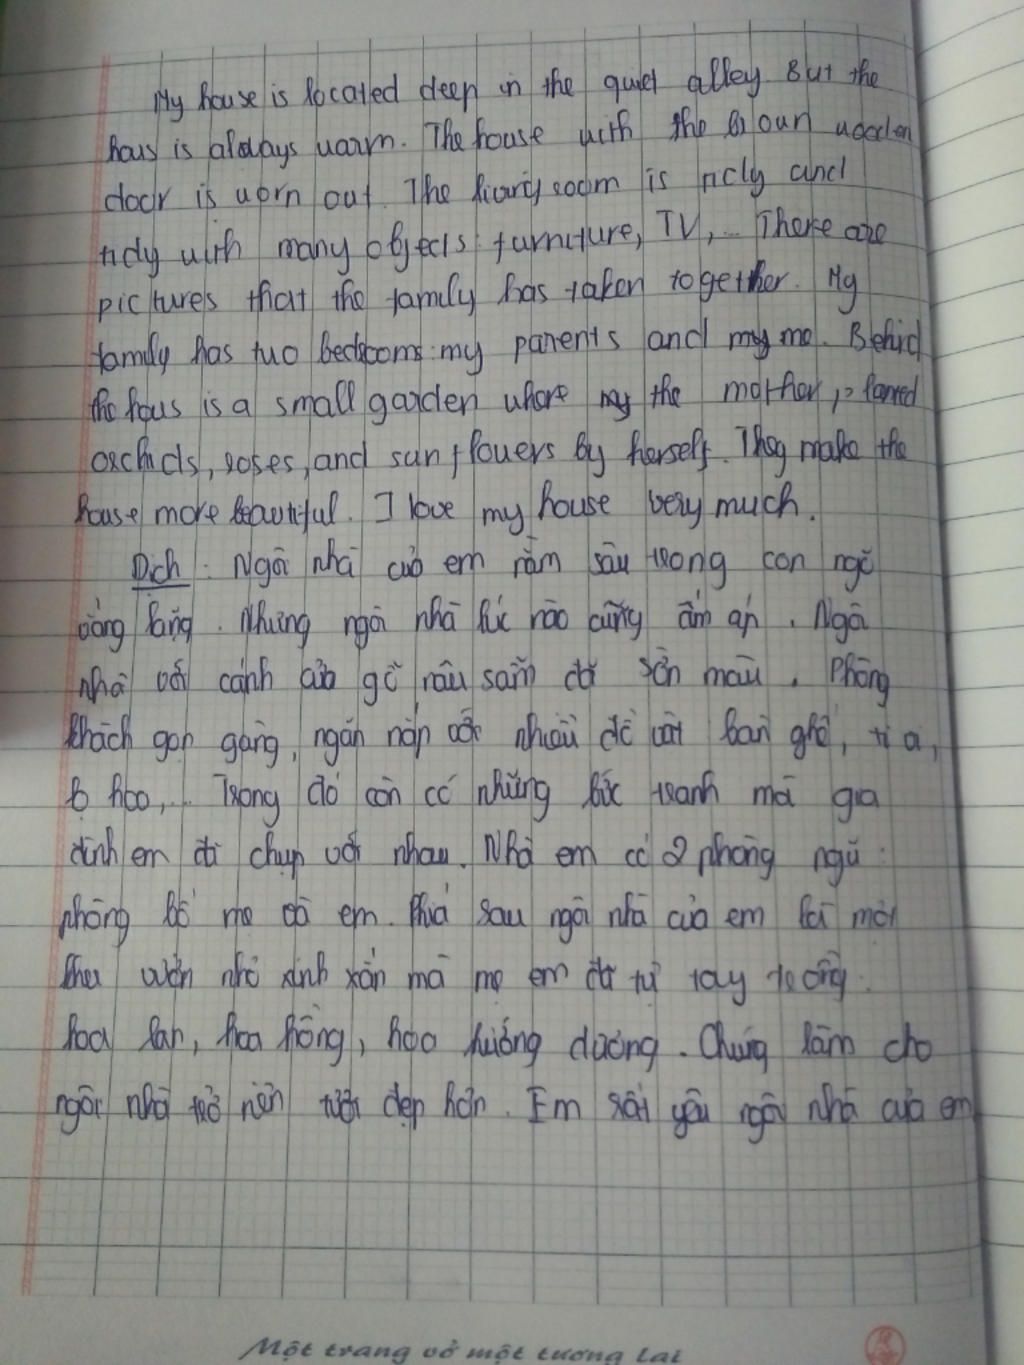 My house is located deep in the quiet alley. But the
hous is always warm. The house with the broun wooden
door is worn out. The living room is ticly and
tidy with many objects: furniture, TV,... There are
pictures that the family has taken together. My
family has two bedrooms: my parents and my me. Behind
the hous is a small garden where my the mother
orchids, roses, and sunflowers by herself. They make the
house more beautiful. I love my house very much.
Dịch: Ngôi nhà của em nằm sâu trong con ngõ
vắng lặng. Nhưng ngôi nhà lúc nào cũng ấm áp. Ngôi
nhà với cánh cửa gỗ nâu sẫm đã sờn màu. Phòng
khách gọn gàng, ngăn nắp với nhiều đồ vật bàn ghế, ti vi,
lọ hoa,... Trong đó còn có những bức tranh mà gia
đình em đã chụp với nhau. Nhà em có 2 phòng ngủ:
phòng bố mẹ và em. Phía sau ngôi nhà của em là một
khu vườn nhỏ xinh xắn mà mẹ em đã tự tay trồng:
hoa lan, hoa hồng, hoa hướng dương. Chúng làm cho
ngôi nhà trở nên tươi đẹp hơn. Em rất yêu ngôi nhà của em
Một trang vở một tương lai